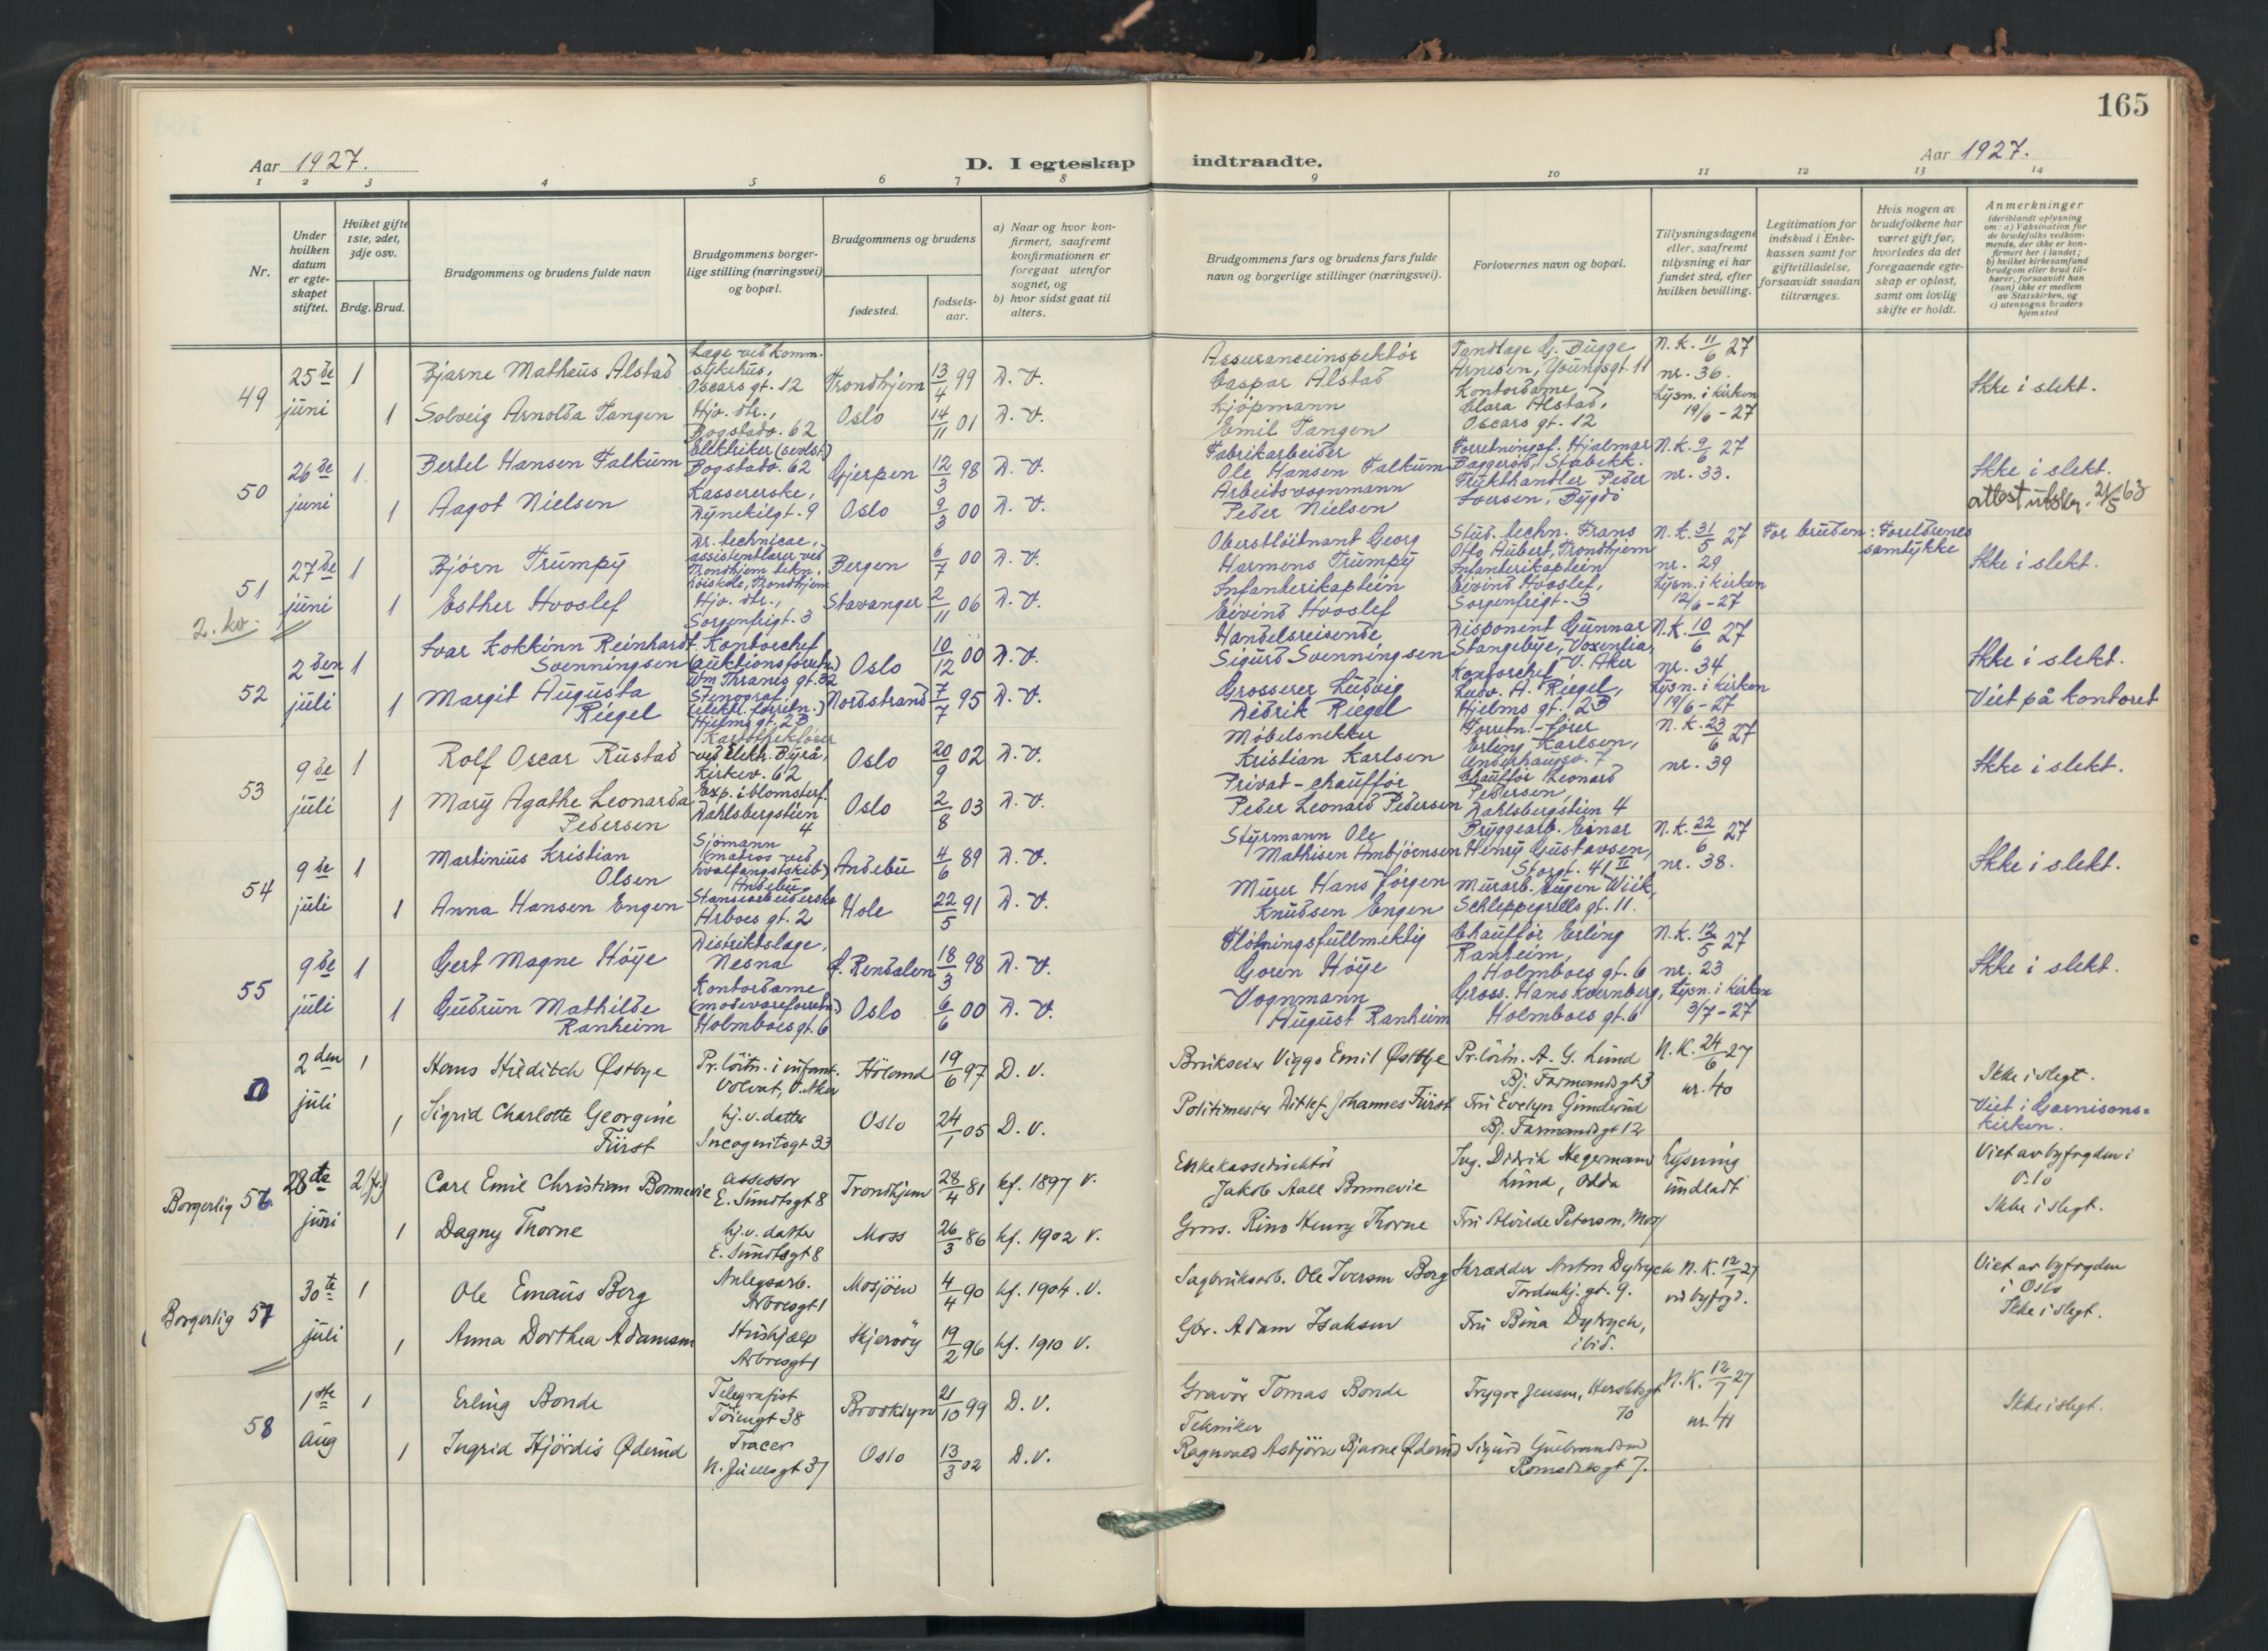 165
Aar 1927.
D. I egteskap indtraadte.
Aar 1927.
1 2 3 4 5 6 7 8 9 10 11 12 13 14
Nr.
Under hvilken datum er egteskapet stiftet.
Hvilket gifte 1ste, 2det, 3dje osv.
Brdg. Brud.
Brudgommens og brudens fulde navn
Brudgommens borgerlige stilling (næringsvei) og bopæl.
Brudgommens og brudens
fødested.
fødselsaar.
a) Naar og hvor konfirmert, saafremt konfirmationen er foregaat utenfor sognet, og
b) hvor sidst gaat til alters.
Brudgommens fars og brudens fars fulde navn og borgerlige stillinger (næringsvei).
Forlovernes navn og bopæl.
Tillysningsdagene eller, saafremt tillysning ei har fundet sted, efter hvilken bevilling.
Legitimation for indskud i Enkekassen samt for giftetilladelse, forsaavidt saadan tiltrænges.
Hvis nogen av brudefolkene har været gift før, hvorledes da det foregaaende egteskap er opløst, samt om lovlig skifte er holdt.
Anmerkninger (deriblandt oplysning om: a) Vaksination for de brudefolks vedkommende, der ikke er konfirmert her i landet; b) hvilket kirkesamfund brudgom eller brud tilhører, forsaavidt han (hun) ikke er medlem av Statskirken, og c) utensogns bruders hjemsted
49 25de juni 1 Bjarne Matheus Alstad Læge ved komm. sykehus, Oscars gt. 12 Trondhjem 13/4 99 D. V. Assuranceinspektör Caspar Alstad Tandlæge G. Bugge Arnesen, Youngsgt. 11 N. K. 11/6 27 nr. 36. Ikke i slekt.
1 Solveig Arnolda Tangen Hjv. dtr., Bogstadv. 62 Oslo 14/11 01 D. V. Kjöpmann Emil Tangen Kontordame Clara Alstad, Oscars gt. 12 Lysn. i kirken 19/6 - 27
50 26de juni 1 Bertel Hansen Falkum Elektriker (selvst.) Bogstadv. 62 Gjerpen 12/3 98 D. V. Fabrikarbeider Ole Hansen Falkum Forretningsf. Hjalmar Baggeröd, Stabekk. N. K. 9/6 27 nr. 33. Ikke i slekt.
1 Aagot Nielsen Kassererske, Dynekilgt. 9 Oslo 9/3 00 D. V. Arbeidsvognmann Peder Nielsen Frukthandler Peder Iversen, Bygdö attest utskr. 21/5 63
51 27de juni 1 Bjørn Trumpy Dr. technicae, assistentlærer ved Trondhjem tekn. höiskole, Trondhjem Bergen 6/7 00 D. V. Oberstlöitnant Georg Harmens Trumpy Stud. techn. Frans Otto Aubert, Trondhjem N. K. 31/5 27 nr. 29 For bruden: Foreldrenes samtykke Ikke i slekt.
1 Esther Hvoslef Hjv. dtr., Sorgenfrigt. 3 Stavanger 2/11 06 D. V. Infanterikaptein Eivind Hvoslef Infanterikaptein Eivind Hvoslef, Sorgenfrigt. 3 Lysn. i kirken 12/6 - 27
2. kv.
52 2den juli 1 Ivar Kokkinn Reinhardt Svenningsen Kontorchef (auktionsforretn.) Wm Thranes gt. 32 Oslo 10/12 00 D. V. Handelsreisende Sigurd Svenningsen Disponent Gunnar Stangebye, Voxenlia, V. Aker N. K. 10/6 27 nr. 34 Ikke i slekt.
1 Margit Augusta Riegel Stenograf (elektr. forretn.) Hjelms gt. 2B Nordstrand 7/7 95 D. V. Grosserer Ludvig Didrik Riegel Kontorchef Ludv. A. Riegel, Hjelms gt. 2B Lysn. i kirken 19/6 - 27 Viet på kontoret
53 9de juli 1 Rolf Oscar Rustad Kartothekfører ved Elektr. Byrå, Kirkev. 62 Oslo 20/9 02 D. V. Möbelsnekker Kristian Karlsen Forretn.-fører Erling Karlsen, Underhaugsv. 7 N. K. 23/6 27 nr. 39 Ikke i slekt.
1 Mary Agathe Leonarda Pedersen Exp. i blomsterf. Dahlsbergstien 4 Oslo 2/8 03 D. V. Privat-chauffør Peder Leonard Pedersen Chauffør Leonard Pedersen, Dahlsbergstien 4
54 9de juli 1 Martinius Kristian Olsen Sjömann (matros ved hvalfangstskib) Andebu Andebu 4/6 89 D. V. Styrmann Ole Mathisen Ambjörnsen Bryggearb. Einar Henry Gustavsen, Storgt. 41 II N. K. 22/6 27 nr. 38. Ikke i slekt.
1 Anna Hansen Engen Stansearbeiderske Arboes gt. 2 Hole 22/5 91 D. V. Murer Hans Jörgen Knudsen Engen Murarb. Eugen Wiik, Schleppegrells gt. 11.
55 9de juli 1 Gert Magne Höye Distriktslæge, Nesna Ø. Rendalen 18/3 98 D. V. Flötningsfullmektig Goren Höye Chauffør Erling Ranheim, Holmboes gt. 6 N. K. 12/5 27 nr. 23 Ikke i slekt.
1 Gudrun Mathilde Ranheim Kontordame (motevareforretn.) Holmboes gt. 6 Oslo 6/6 00 D. V. Vognmann August Ranheim Gross. Hans Kvernberg, Holmboes gt. 6 Lysn. i kirken 3/7 - 27
2den juli 1 Hans Hilditch Østbye Pr. löitn. i infant. Volvat, V. Aker Höland 19/6 97 D. V. Brukseier Viggo Emil Østbye Pr. löitn. A. G. Lund Bj. Farmandsgt 3 N. K. 24/6 27 nr. 40 Ikke i slegt.
1 Sigrid Charlotte Georgine Fürst hj. v. datter Incognitogt 33 Oslo 24/1 05 D. V. Politimester Ditlef Johannes Fürst Fru Evelyn Gunderud Bj. Farmandsgt 12 Viet i Garnisonskirken.
Borgerlig 56 28de juni 2 (f.) Carl Emil Christian Bonnevie assessor E. Sundtsgt 8 Trondhjem 28/4 81 kf. 1897 V. Enkekassedirektör Jakob Aall Bonnevie Ing. Didrik Hegermann Lund, Odda Lysning undladt Viet av byfogden i Oslo
1 Dagny Thorne hj. v. datter E. Sundtsgt 8 Moss 26/3 86 kf. 1902 V. Gross. Rino Henry Thorne Fru Alvilde Peterson, Moss Ikke i slegt.
Borgerlig 57 30te juli 1 Ole Emaus Berg Anlegsarb. Arboesgt 1 Mosjöen 4/4 90 kf. 1904. V. Sagbruksarb. Ole Iversen Berg Skrædder Anton Dytrych Tordenskj. gt. 9. N. K. 12/7 27 ved byfogd. Viet av byfogden i Oslo
1 Anna Dorthea Adamsen Hushjælp Arboesgt 1 Skjervöy 19/2 96 kf. 1910 V. Gbr. Adam Isaksen Fru Bina Dytrych, ibid. Ikke i slegt.
58 1ste aug 1 Erling Bonde Telegrafist Töiengt 38 Brooklyn 21/10 99 D. V. Gravör Tomas Bonde Trygve Jensen, Herslebsgt 70 N. K. 12/7 27 nr. 41 Ikke i slegt.
1 Ingrid Hjördis Øderud Tracer N. Juelsgt 37 Oslo 13/3 02 D. V. Tekniker Ragnvald Asbjörn Bjarne Øderud Sigurd Gulbrandsen Romsdalsgt 7.